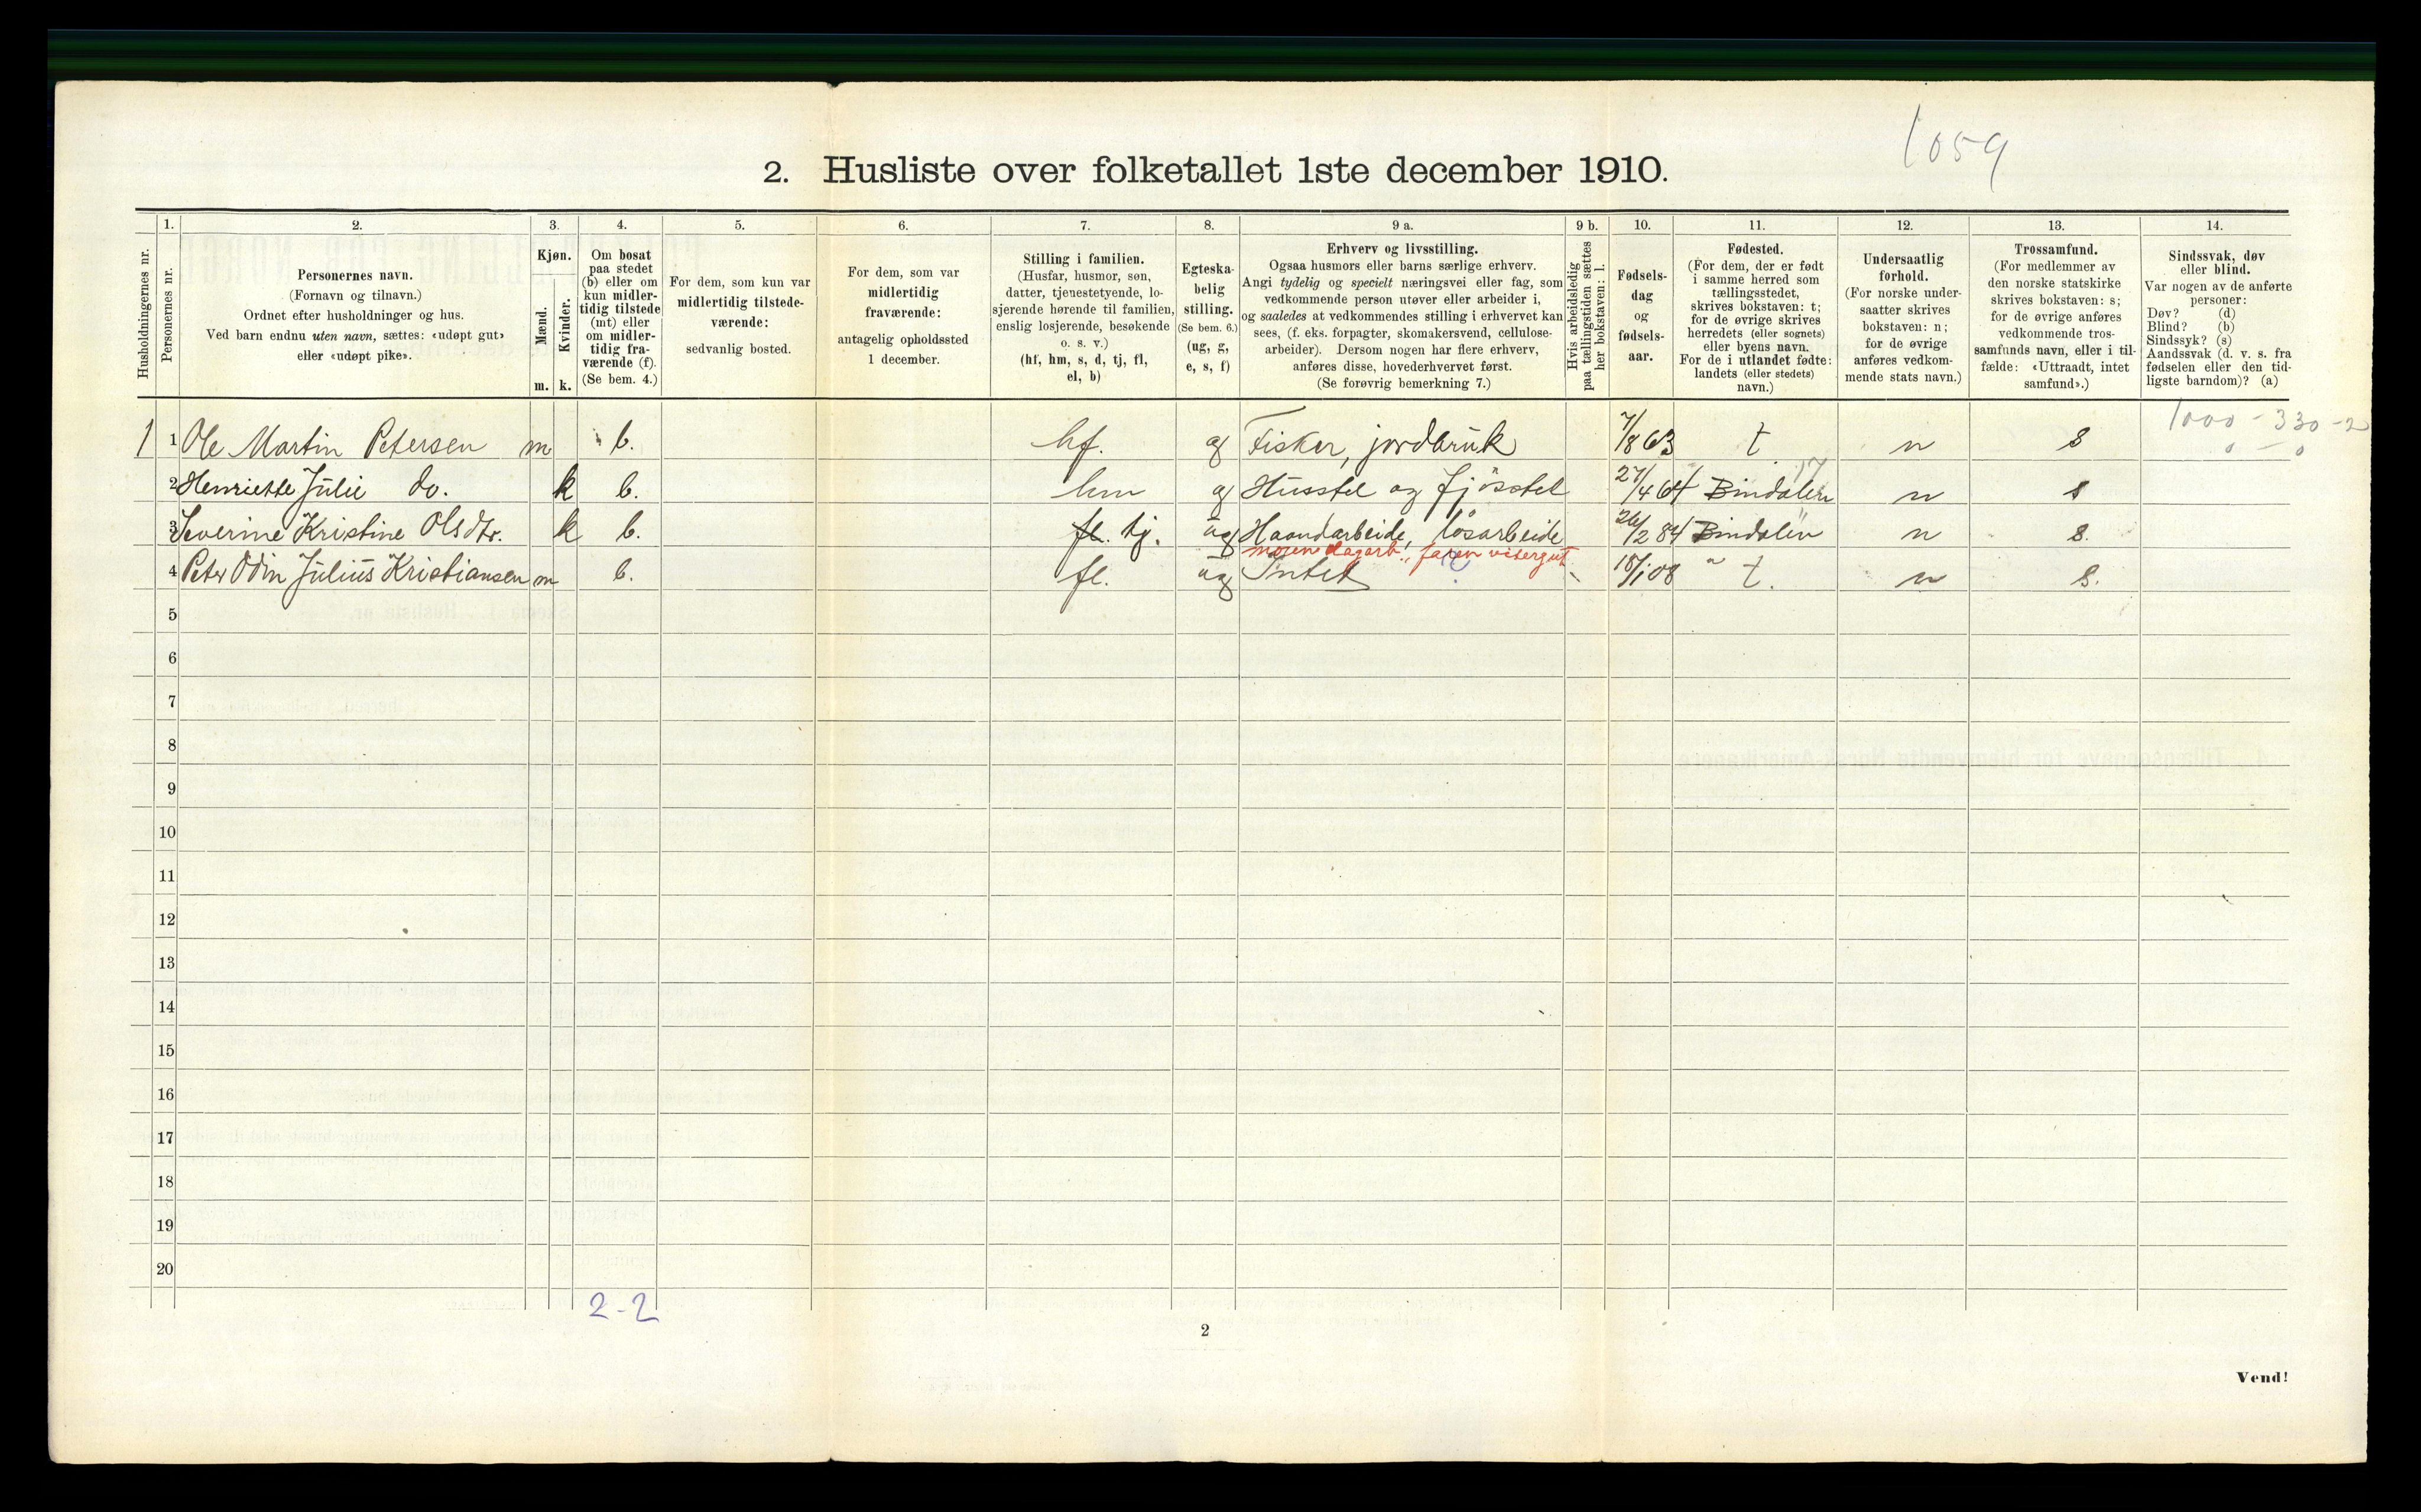 1059
2. Husliste over folketallet 1ste december 1910.
Husholdningernes nr.
1.
Personernes nr.
2.
Personernes navn.
(Fornavn og tilnavn.)
Ordnet efter husholdninger og hus.
Ved barn endnu uten navn, sættes: «udøpt gut»
eller «udøpt pike».
3.
Kjøn.
Mænd.
Kvinder.
m. k.
4.
Om bosat
paa stedet
(b) eller om
kun midler-
tidig tilstede
(mt) eller
om midler-
tidig fra-
værende (f).
(Se bem. 4.)
5.
For dem, som kun var
midlertidig tilstede-
værende:
sedvanlig bosted.
6.
For dem, som var
midlertidig
fraværende:
antagelig opholdssted
1 december.
7.
Stilling i familien.
(Husfar, husmor, søn,
datter, tjenestetyende, lo-
sjerende hørende til familien,
enslig losjerende, besøkende
o. s. v.)
(hf, hm, s, d, tj, fl,
el, b)
8.
Egteska-
belig
stilling.
(Se bem. 6.)
(ug, g,
e, s, f)
9 a.
Erhverv og livsstilling.
Ogsaa husmors eller barns særlige erhverv.
Angi tydelig og specielt næringsvei eller fag, som
vedkommende person utøver eller arbeider i,
og saaledes at vedkommendes stilling i erhvervet kan
sees, (f. eks. forpagter, skomakersvend, cellulose-
arbeider). Dersom nogen har flere erhverv,
anføres disse, hovederhvervet først.
(Se forøvrig bemerkning 7.)
9 b.
Hvis arbeidsledig
paa tællingstiden sættes
her bokstaven: l.
10.
Fødsels-
dag
og
fødsels-
aar.
11.
Fødested.
(For dem, der er født
i samme herred som
tællingsstedet,
skrives bokstaven: t;
for de øvrige skrives
herredets (eller sognets)
eller byens navn.
For de i utlandet fødte:
landets (eller stedets)
navn.)
12.
Undersaatlig
forhold.
(For norske under-
saatter skrives
bokstaven: n;
for de øvrige
anføres vedkom-
mende stats navn.)
13.
Trossamfund.
(For medlemmer av
den norske statskirke
skrives bokstaven: s;
for de øvrige anføres
vedkommende tros-
samfunds navn, eller i til-
fælde: «Uttraadt, intet
samfund».)
14.
Sindssvak, døv
eller blind.
Var nogen av de anførte
personer:
Døv? (d)
Blind? (b)
Sindssyk? (s)
Aandssvak (d. v. s. fra
fødselen eller den tid-
ligste barndom)? (a)
1000 - 330 - 2
0 - 0
1 1 Ole Martin Petersen m b. hf. g Fisker, jordbruk 7/8 63 t n s
2 Henriette Julie do. k b. hm g Husstel og fjösstel 27/4 64 Bindalen n s
17
3 Severine Kristine Olsdtr. k b. fl. tj. ug Haandarbeide, lösarbeide 26/2 84 Bindalen n s.
moren dagarb., faren visergut
4 Peter Odin Julius Kristiansen m b. fl. ug Intet 18/1 08 t. n s.
5
6
7
8
9
10
11
12
13
14
15
16
17
18
19
20
2-2
2
Vend!